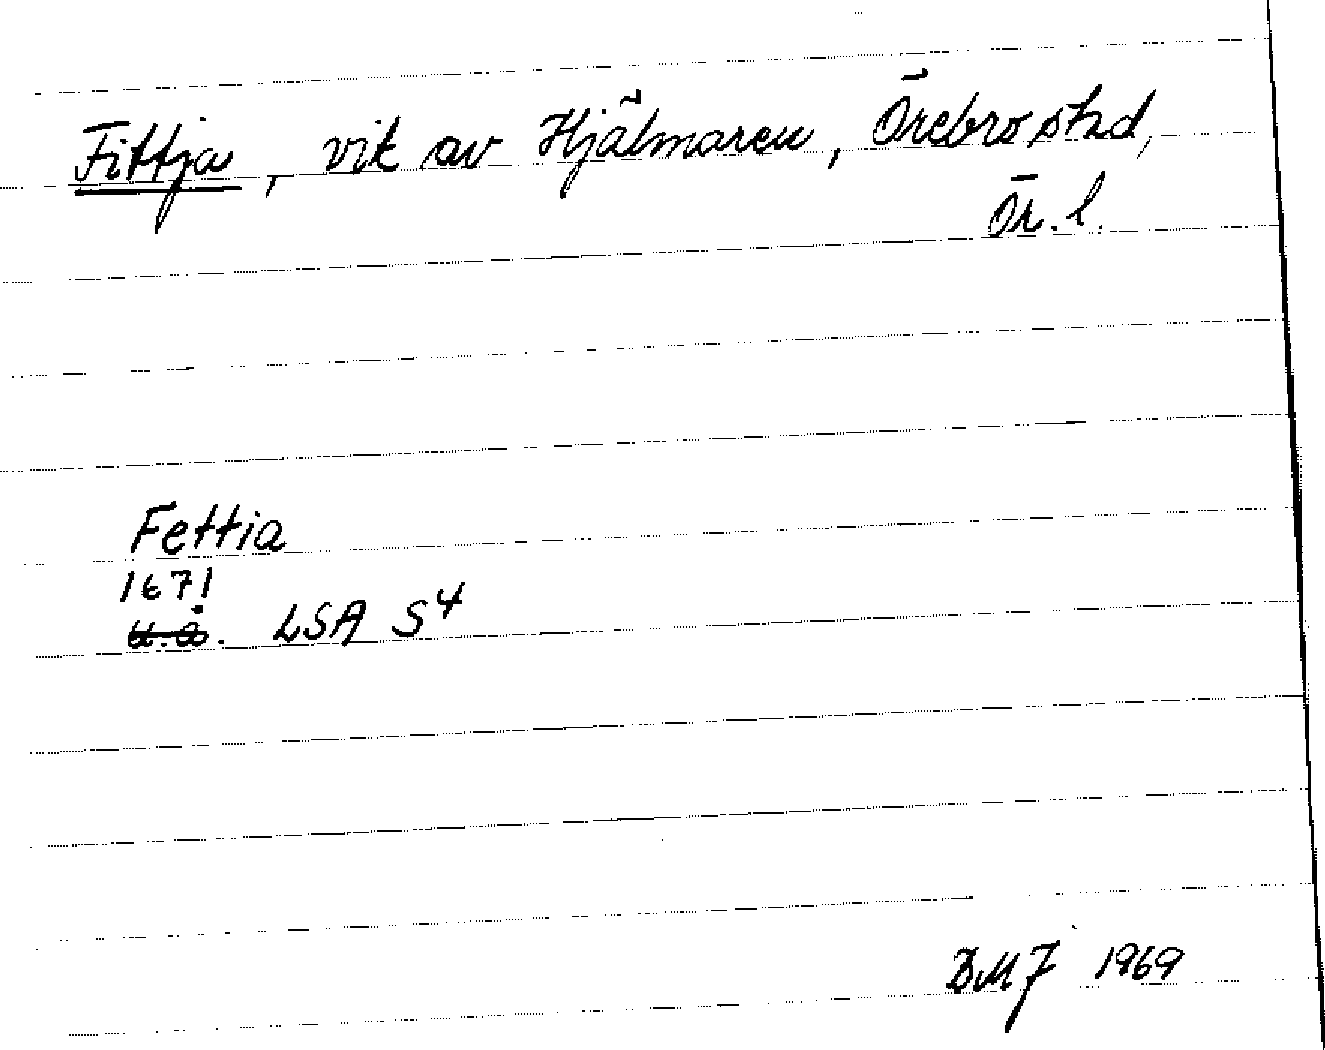 Fittja, vik av Hjälmaren, Örebro stad,
Ör. l.
Fettia
1671
u.å. LSA S4
BMJ 1969